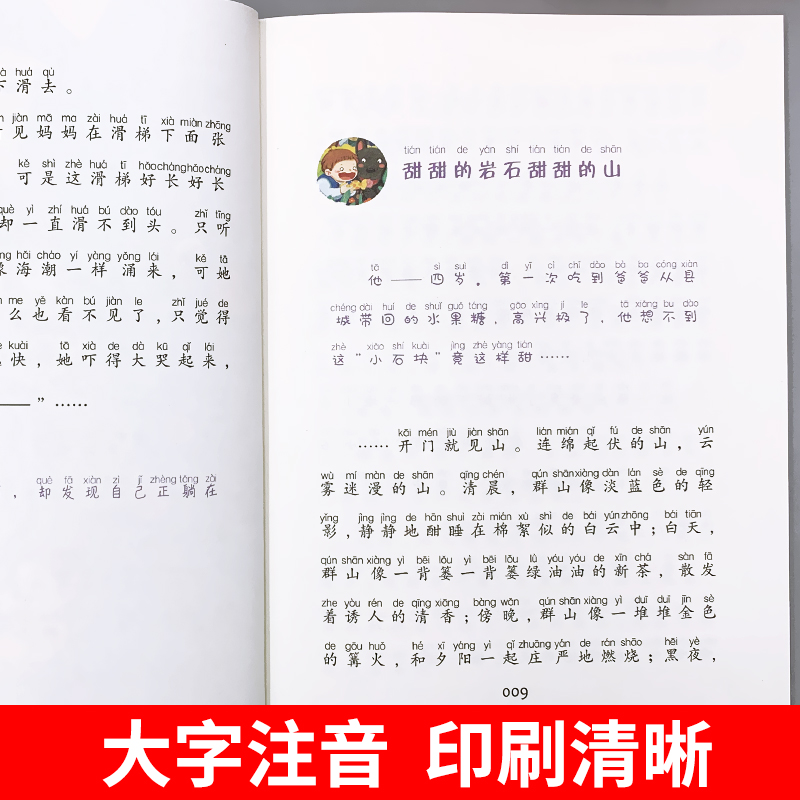 huá qù
下滑去。
jiàn mā ma zài huá tī xià miàn zhāng
见妈妈在滑梯下面张
kě shì zhè huá tī hǎo cháng hǎo cháng
可是这滑梯好长好长
què yì zhí huá bú dào tóu zhǐ tīng
却一直滑不到头。只听
hǎi cháo yí yàng yǒng lái kě tā
像海潮一样涌来，可她
me yě kàn bú jiàn le zhǐ jué de
么也看不见了，只觉得
kuài tā xià de dà kū qǐ lái
快，她吓得大哭起来，
——”……
què fā xiàn zì jǐ zhèng tǎng zài
，却发现自己正躺在
tián tián de yán shí tián tián de shān
甜甜的岩石甜甜的山
tā sì suì dì yī cì chī dào bà ba cóng xiàn
他——四岁。第一次吃到爸爸从县
chéng dài huí de shuǐ guǒ táng gāo xìng jí le tā xiǎng bu dào
城带回的水果糖，高兴极了，他想不到
zhè xiǎo shí kuài jìng zhè yàng tián
这“小石块”竟这样甜……
kāi mén jiù jiàn shān lián mián qǐ fú de shān yún
……开门就见山。连绵起伏的山，云
wù mí màn de shān qīng chén qún shān xiàng dàn lán sè de qīng
雾迷漫的山。清晨，群山像淡蓝色的轻
yǐng jìng jìng de hān shuì zài mián xù shì de bái yún zhōng bái tiān
影，静静地酣睡在棉絮似的白云中；白天，
qún shān xiàng yì bēi lǒu yì bēi lǒu lǜ yóu yóu de xīn chá sàn fā
群山像一背篓一背篓绿油油的新茶，散发
zhe yòu rén de qīng xiāng bàng wǎn qún shān xiàng yì duī duī jīn sè
着诱人的清香；傍晚，群山像一堆堆金色
de gōu huǒ hé xī yáng yì qǐ zhuāng yán de rán shāo hēi yè
的篝火，和夕阳一起庄严地燃烧；黑夜，
009
大字注音 印刷清晰